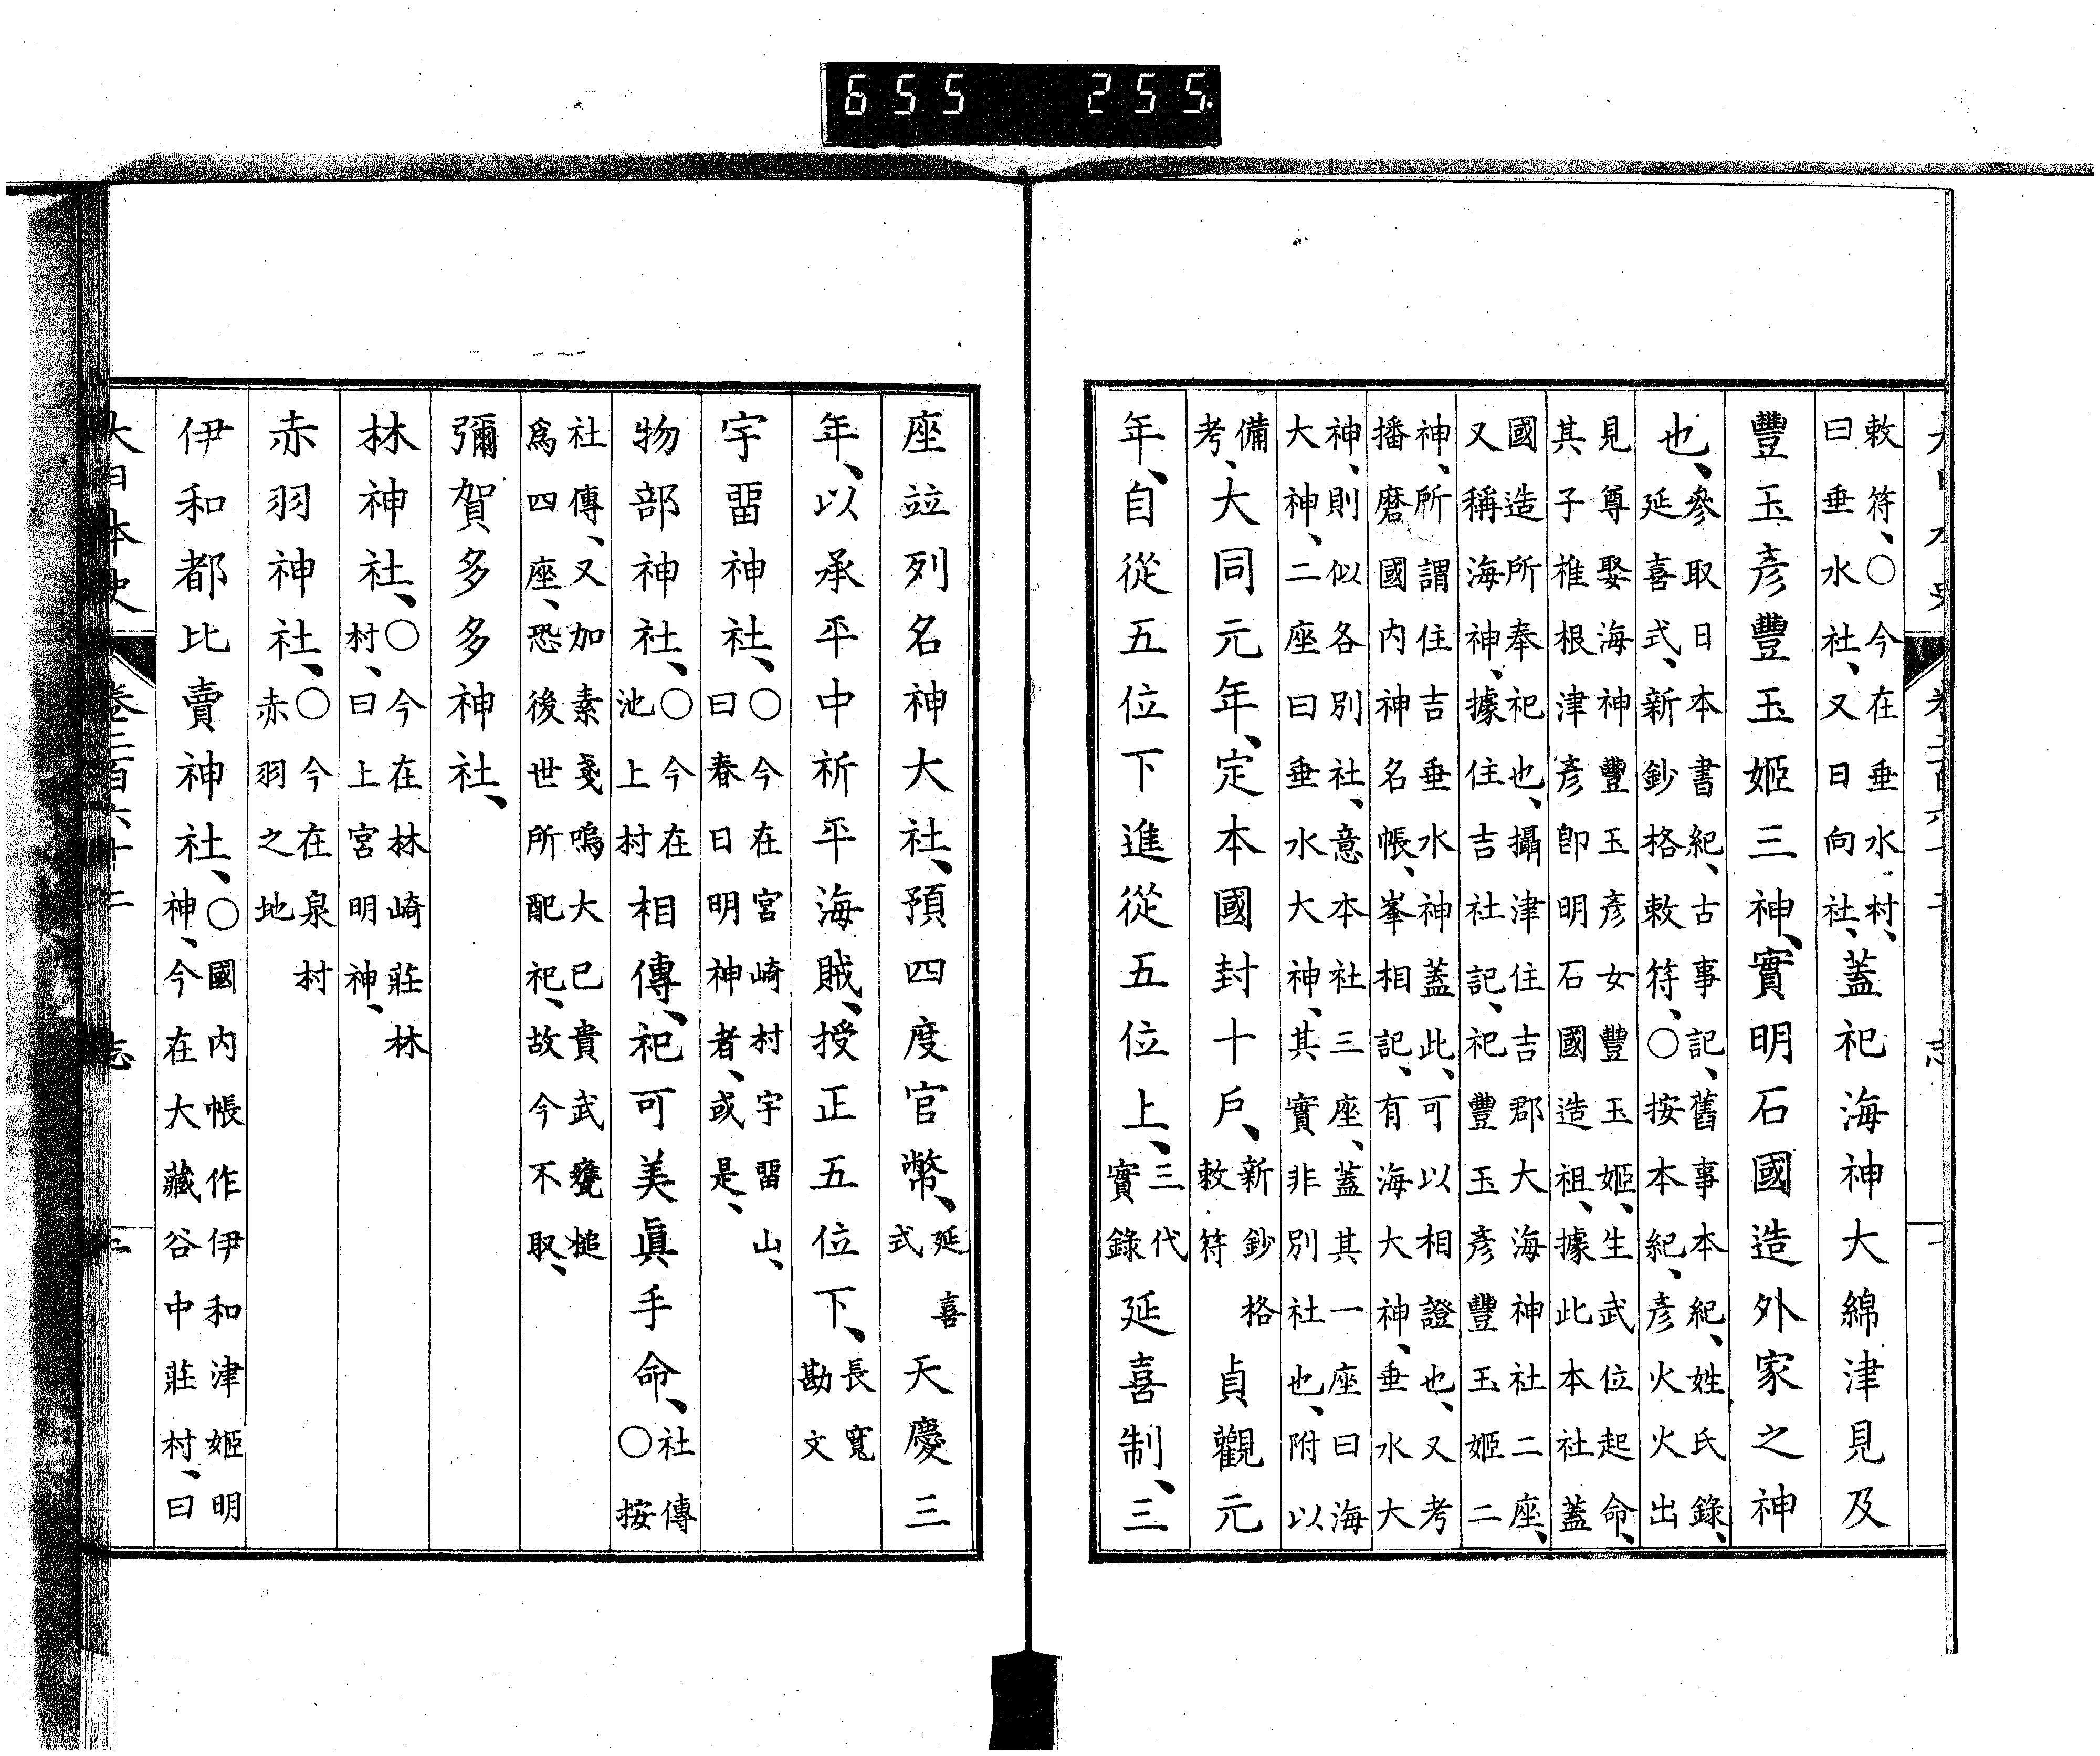 敕符、○今在垂水村、曰垂水社、又日向社、蓋祀海神大綿津見及
豐玉彥豐玉姬三神、實明石國造外家之神
也、參取日本書紀、古事記、舊事本紀、姓氏錄、延喜式、新鈔格敕符、○按本紀、彥火火出
見尊娶海神豐玉彥女豐玉姬、生武位起命、
其子椎根津彥卽明石國造祖、據此本社蓋
國造所奉祀也、攝津住吉郡大海神社二座、
又稱海神、據住吉社記、祀豐玉彥豐玉姬二
神、所謂住吉垂水神蓋此、可以相證也、又考
播磨國内神名帳、峯相記、有海大神、垂水大
神、則似各別社、意本社三座、蓋其一座曰海
大神、二座曰垂水大神、其實非別社也、附以
備考、大同元年、定本國封十戶、新鈔格敕符貞觀元
年、自從五位下進從五位上、三代實錄延喜制、三
座竝列名神大社、預四度官幣、延喜式天慶三
年、以承平中祈平海賊、授正五位下、長寬勘文
宇畱神社、○今在宮崎村宇畱山、曰春日明神者、或是、
物部神社、○今在池上村相傳、祀可美眞手命、社傳○按
社傳、又加素戔嗚大已貴武甕槌
爲四座、恐後世所配祀、故今不取、
彌賀多多神社、
林神社、○今在林崎莊林村、曰上宮明神、
赤羽神社、○今在泉村赤羽之地
伊和都比賣神社、○國内帳作伊和津姬明神、今在大藏谷中莊村、曰
大日本史 卷二百六十二 志
655 255.